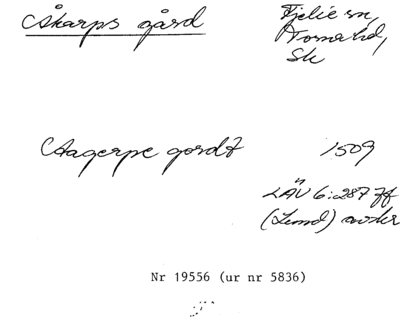 Åkarps gård
Fjelie sn,
Torna hd,
Sk
Aagerpe gordt 1509
LÄU 6:287 ff
(Lund)
Nr 19556 (ur nr 5836)